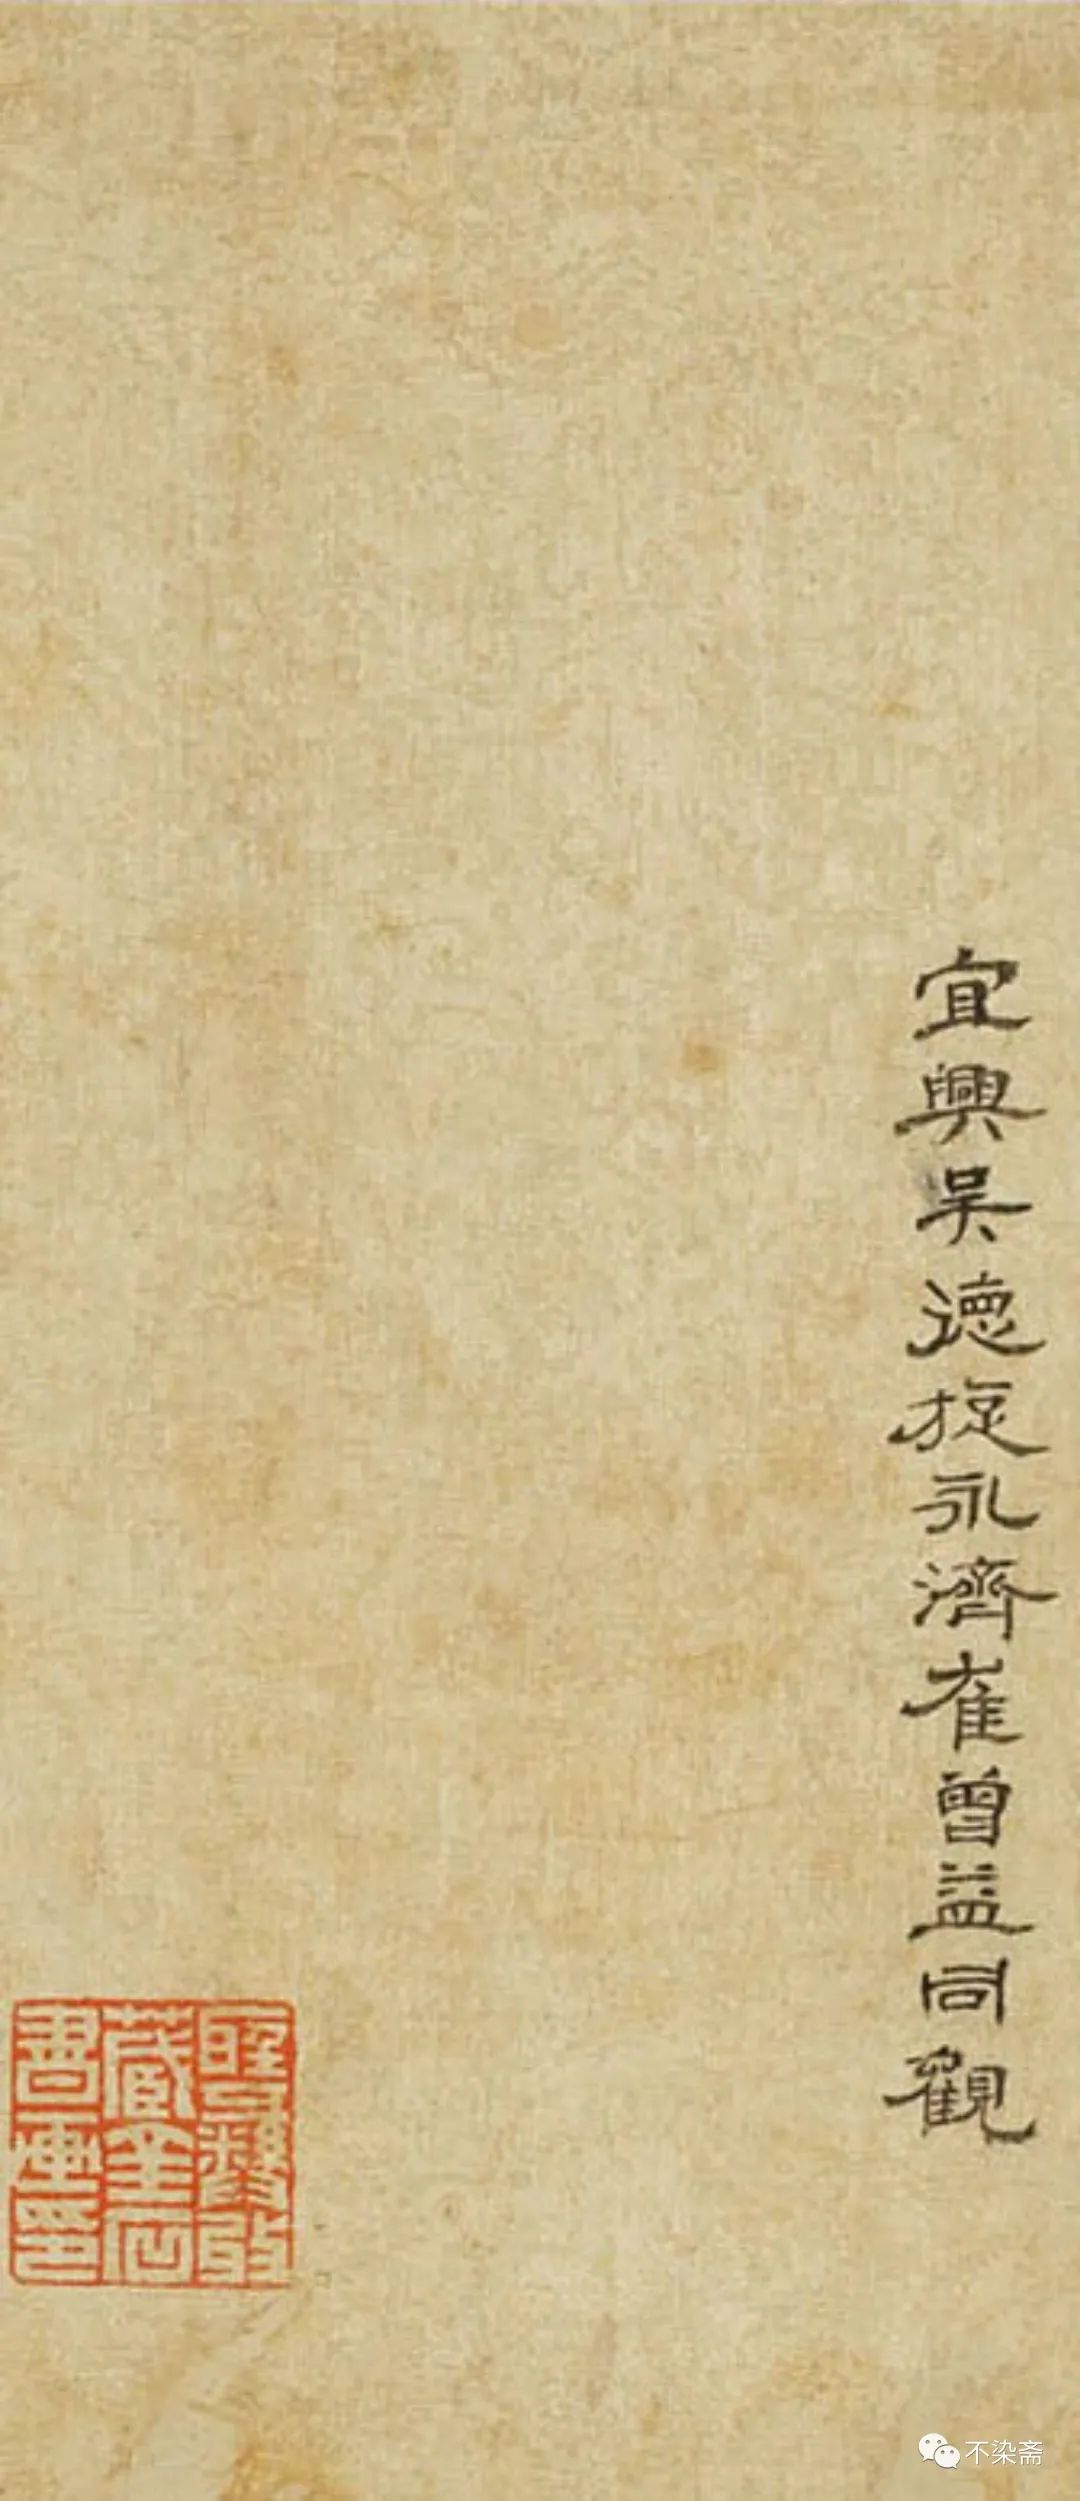 宜興吳德旋永濟崔曾益同觀
藏金石
書畫印
不染斋